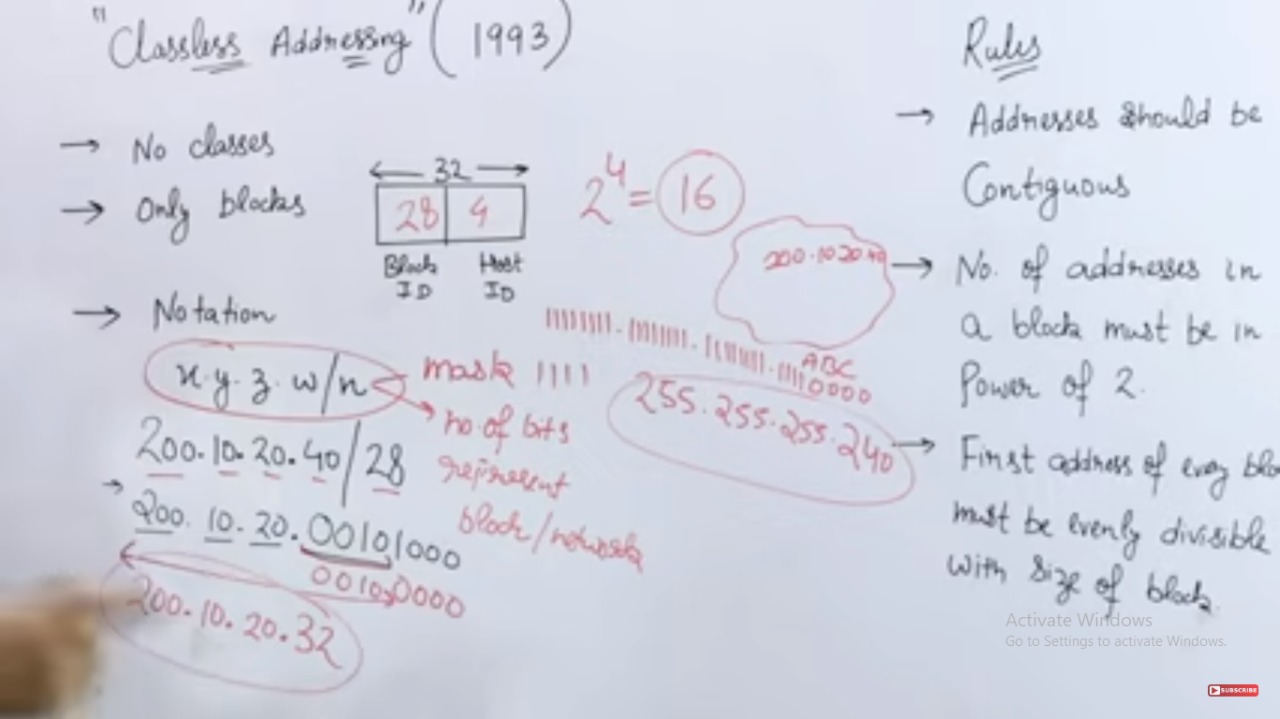 "Classless Addressing" (1993)
→ No classes
→ Only blocks
← 32 →
28 4
Block ID
Host ID
2^4 = 16
→ Notation
x.y.z.w/n
mask 1111
no. of bits
represent
block/network
200.10.20.40/28
→ 200.10.20.00101000
00100000
200.10.20.32
200.10.20.40
11111111.11111111.11111111.11110000
ABC
255.255.255.240
Rules
→ Addresses should be
Contiguous
→ No. of addresses in
a block must be in
Power of 2.
→ First address of every blo
must be evenly divisible
with size of block.
Activate Windows
Go to Settings to activate Windows.
SUBSCRIBE